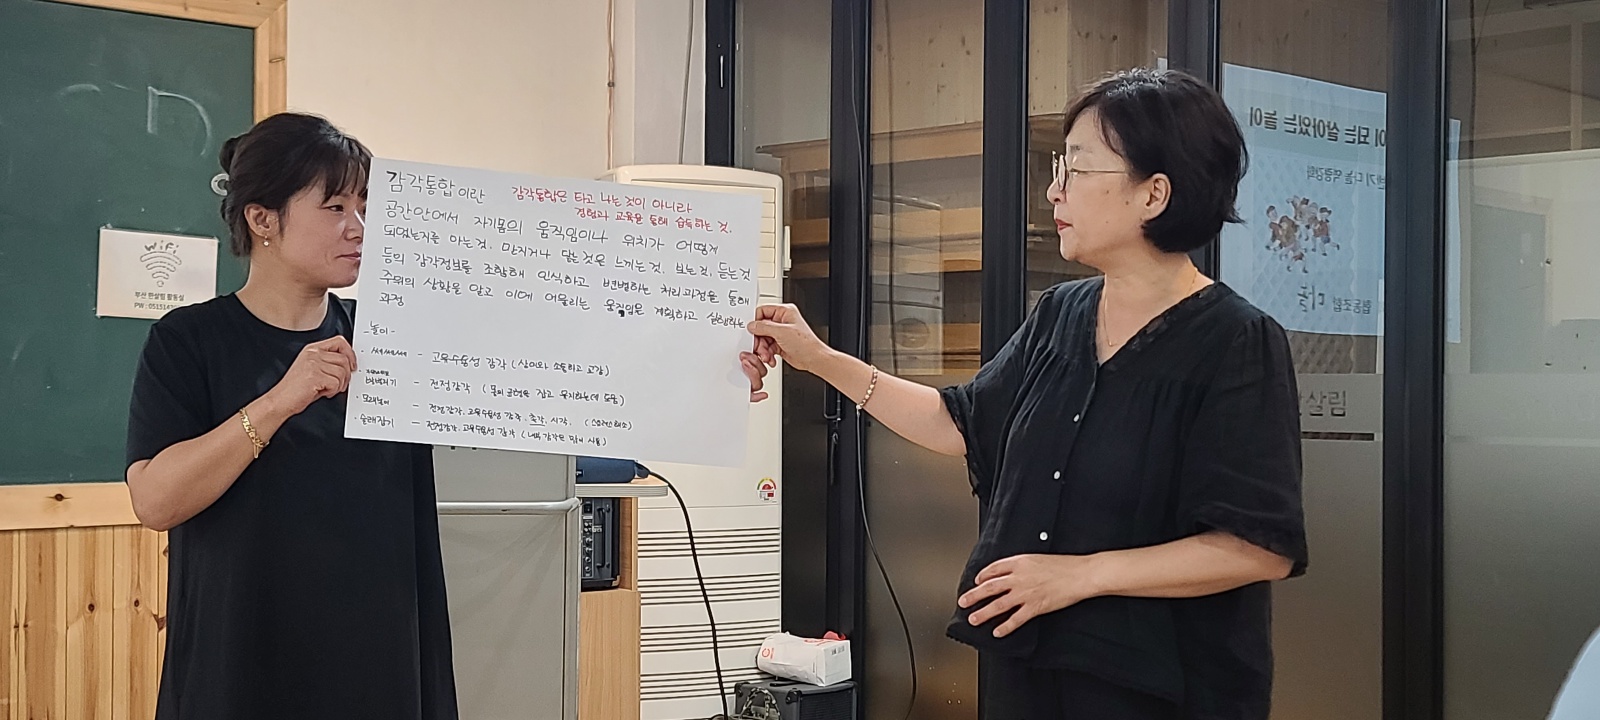 감각통합이란 감각통합은 타고 나는 것이 아니라
경험과 교육을 통해 습득하는 것.
공간안에서 자기몸의 움직임이나 위치가 어떻게
되었는지를 아는것. 만지거나 닿는것은 느끼는것. 보는것, 듣는것
등의 감각정보를 조합해 인식하고 변별하는 처리과정을 통해
주위의 상황을 알고 이에 어울리는 움직임은 계획하고 실행하는
과정
-놀이-
· 쎄쎄쎄 - 고유수용성 감각 (상어와 소통하고 교감)
- 전정감각 (몸의 균형을 잡고 유지하는데 도움)
· 모래놀이 - 전정감각, 고유수용성 감각, 촉각, 시각, (스트레스해소)
· 술래잡기 - 전정감각, 고유수용성 감각 (내부 감각을 많이 사용)
WiFi
부산 한살림 활동실
PW : 0515147
이 되는 살아있는 놀이
다놀 역량강화
협동조합 다놀
살림